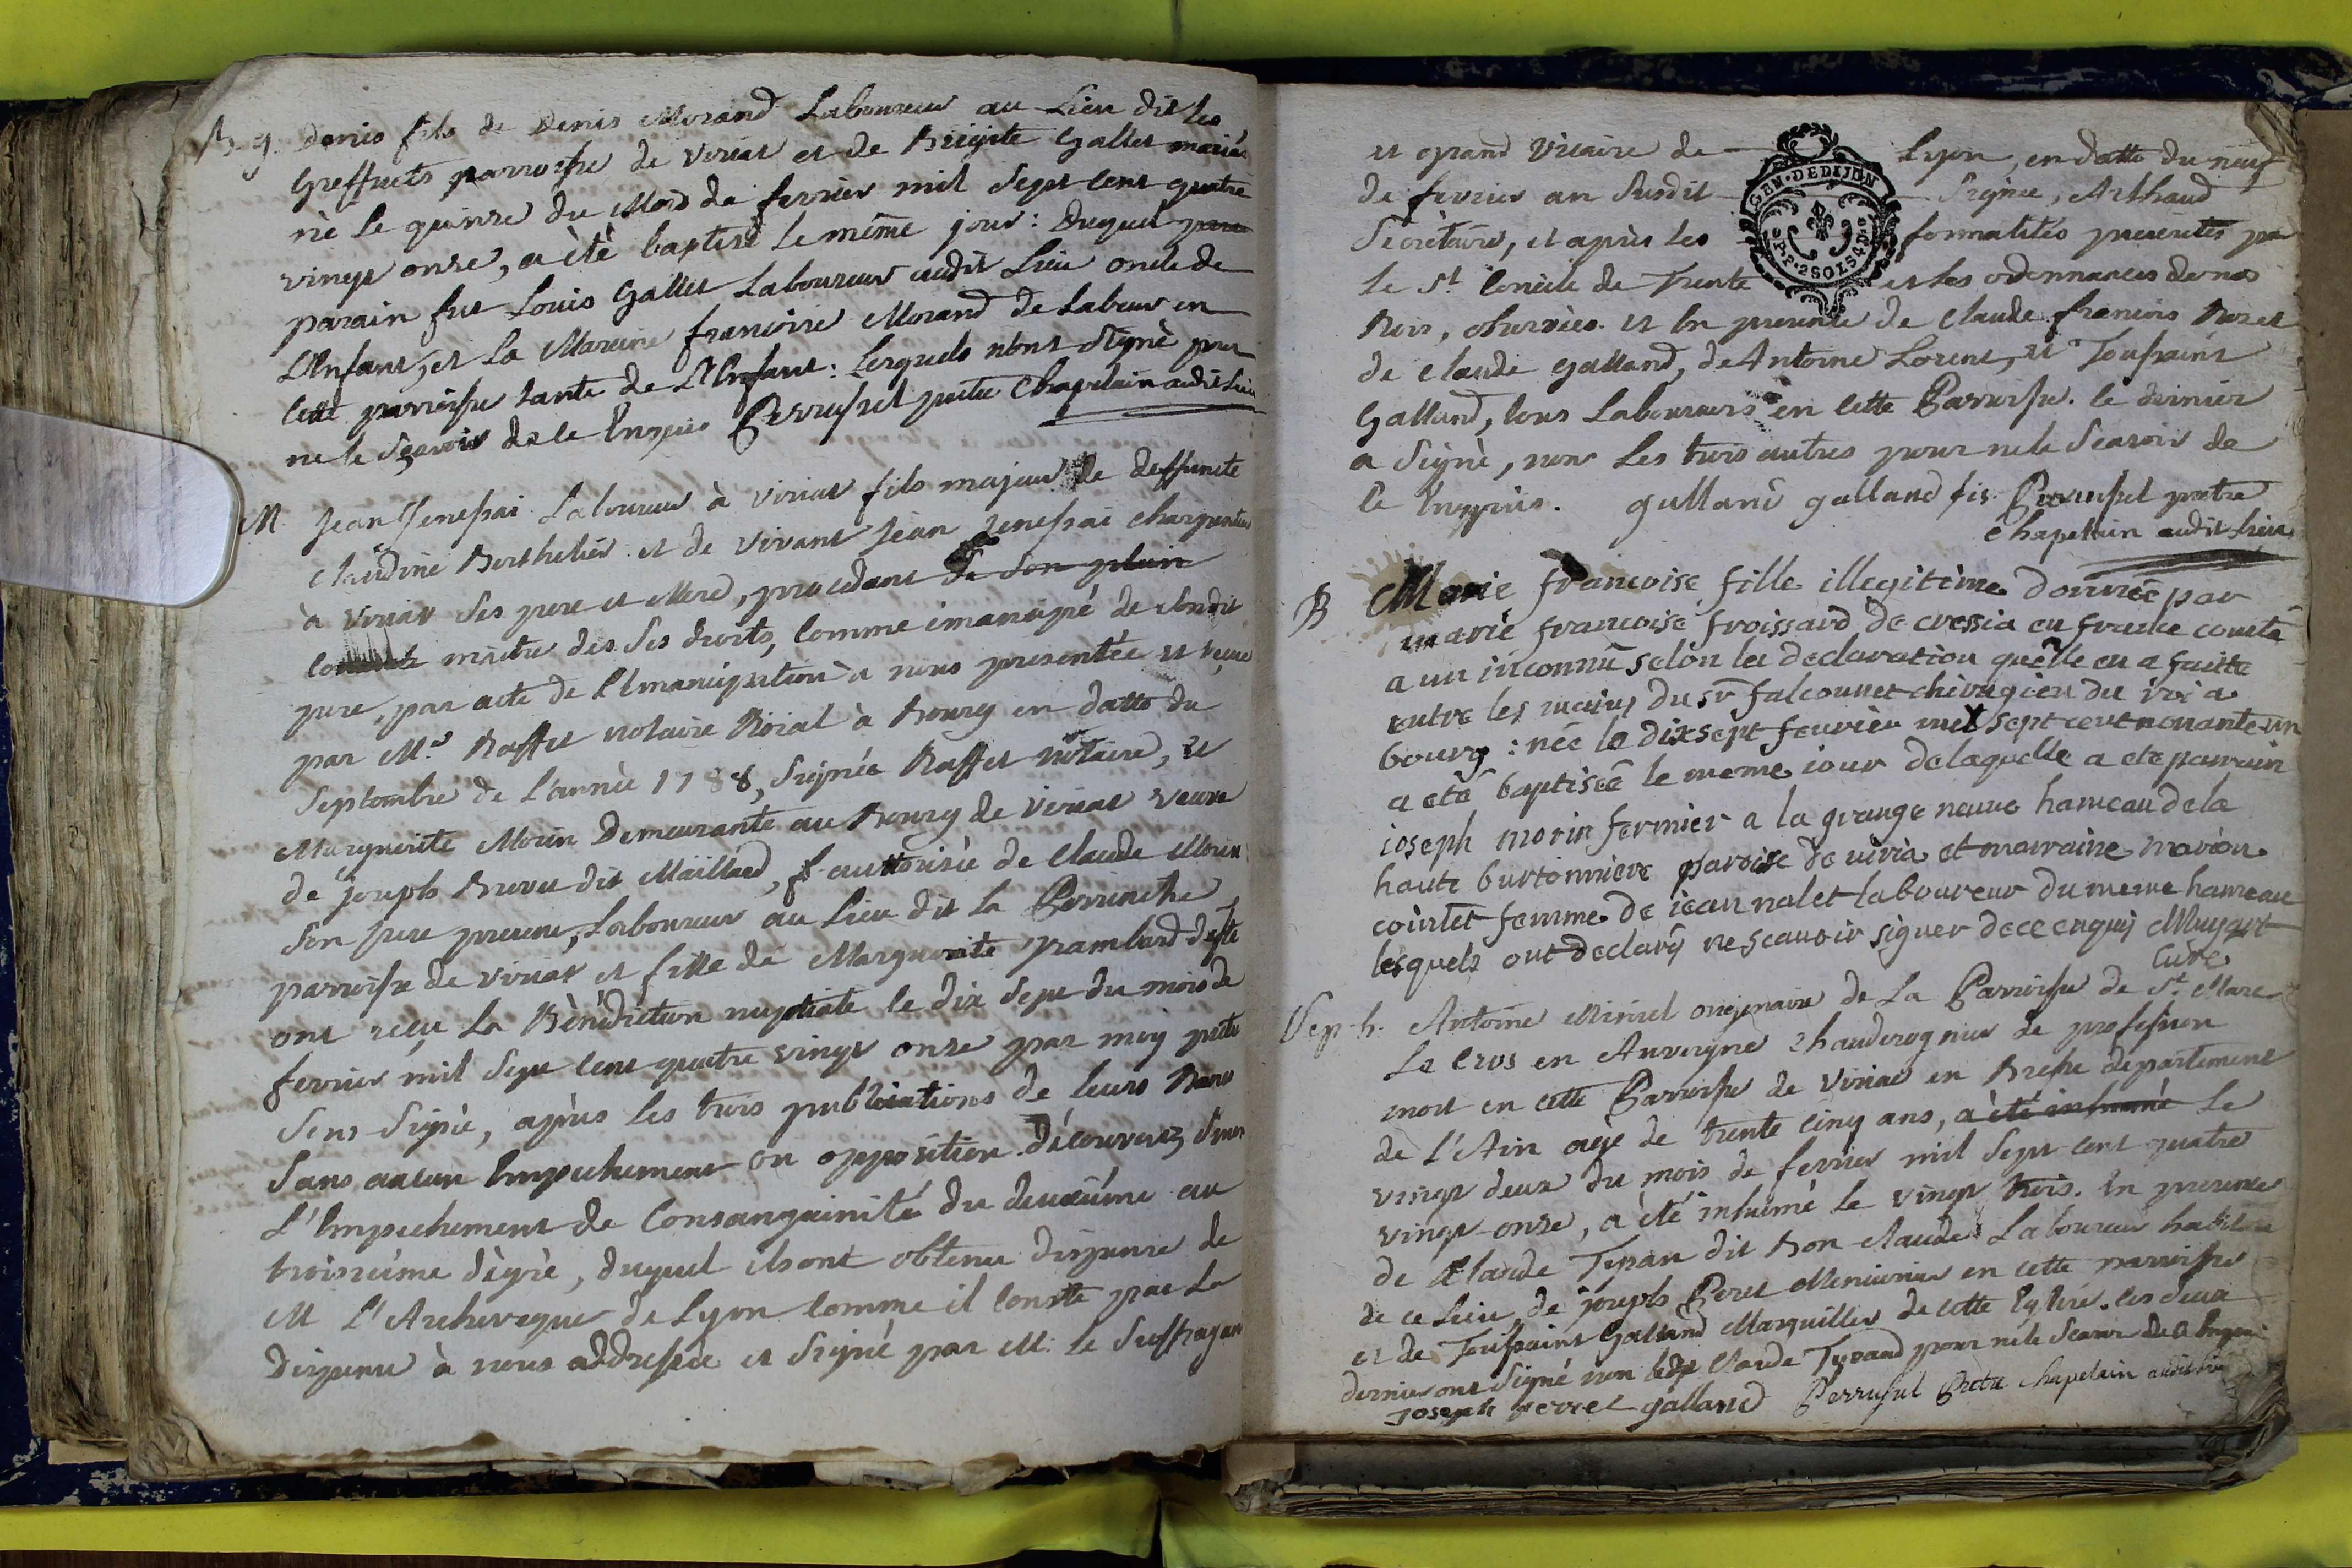 B g. Denis fils de Denis Morand Laboureur au Lieu dit les
Greffuets parroisse de Viriat et de Brigite Gallet mariés
né le quinze du Mois de fevrier mil Sept cent quatre
vingt onze, a èté baptisé le même jour: Duquel
parain fut Louis Gallet Laboureur audit Lieu oncle de
L'Enfant, et La Maraine francoise Morand de Labeur en
cette parroisse tante de L'Enfant: Lesquels n'ont signé pour
ne le sçavoir de ce Enquis Perrussel prètre Chapelain audit Lieu
M. Jean Jenessai Laboureur à Viriat fils majeur de deffuncte
Claudine Berthelier et de vivant Jean Jenessai charpentier
à Viriat Ses pere et Mere, procedant de son plein
maitre des Ses droits, comme émancipé de sondit
pere, par acte de L'Emancipation à nous presentée et reçue
par Me. Raffet notaire Roial à Bourg en datte du
Septembre de L'année 1788, Signée Raffet notaire, et
Marguerite Morin Demeurante au Bourg de Viriat veuve
de joseph Buvet dit Maillard, authorisée de Claude Morin
Son pere presens, Laboureur au Lieu dit La Perrinche
parroisse de Viriat et fille de Marguerite
ont reçu La Bénédiction nuptiale le dix Sept du mois de
fevrier mil Sept cent quatre vingt onze par moy prètre
Sous Signé, après les trois publications de leurs Bans
Sans aucun Empechement ou opposition découverts, Sinon
L'Empechement de Consanguinité du deuxiéme au
troisieme dégré, duquel ils ont obtenu dispense de
M L'Archeveque de Lyon comme il conste par La
Dispense à nous addressée et Signé par M. le Suffragan
et grand Vicaire de Lyon, en datte du neuf
de fevrier an Susdit Signée, Arthaud
Sècretaire, et après les formalités prescrites par
Le St. Concile de Trente et les ordonnances de nos
Rois, observées. et En presence de Claude francois
de Claude Galland, de Antoine Lorent, et Toussaint
Galland, tous Laboureurs en cette Parroisse. le dernier
a Signé, non Les trois autres pour ne le Scavoir de
ce Enquis. galland galland fis Perrussel prètre
Chapellain audit Lieu
GEN. DE DIJON
P.P. 2 SOLS 4 D.
B Marie francoise fille illegitime donnée par
marie francoise froissard de cressia en franche comté
a un inconnu selon la declaration quelle en a faitte
entre les mains du sr falconnet chirugien du roi a
bourg: née le dix sept fevrier mil sept cent nonante un
a eté baptisée le meme iour de laquelle a ete parrain
ioseph morin fermier a la grange neuve hameau de la
haute burtonniere paroise de viria et marraine marion
courtet femme de iean nalet laboureur du meme hameau
lesquels ont declaré ne scavoir signer de ce enquis
Curé
Sep-h. Antoine originaire de La Parroisse de St. Mare
Le Cros en Auvergne chauderognier de profession
mort en cette Parroisse de Viriat en Bresse departement
de L'Ain agé de trente cinq ans, a èté inhumé Le
vingt deux du mois de fevrier mil Sept cent quatre
vingt onze, a èté inhumé le vingt trois. En presence
de Claude Tepan dit Bon Claude Laboureur habitant
de ce Lieu, de joseph Peret Menuisier en cette parroisse
et de Toussaint Galland Marguillier de cette Eglise. les deux
derniers ont Signé non Claude pour ne le Scavoir de ce Enquis
joseph perret galland Perrussel Prètre chapelain audit lieu